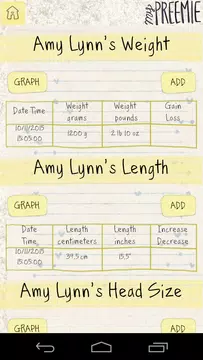 my PREEMIE
Amy Lynn's Weight
GRAPH ADD
Date Time Weight grams Weight pounds Gain Loss
10/11/2013 15:05:00 1200 g 2 lb 10 oz
Amy Lynn's Length
GRAPH ADD
Date Time Length centimeters Length inches Increase Decrease
10/11/2013 15:05:00 39.5 cm 15.5"
Amy Lynn's Head Size
GRAPH ADD